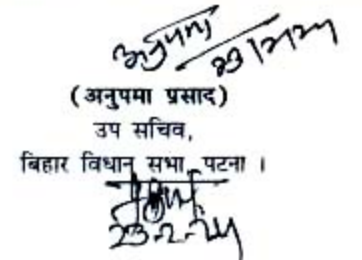 अनुपमा
(अनुपमा प्रसाद)
उप सचिव,
बिहार विधान सभा, पटना ।
23-2-24